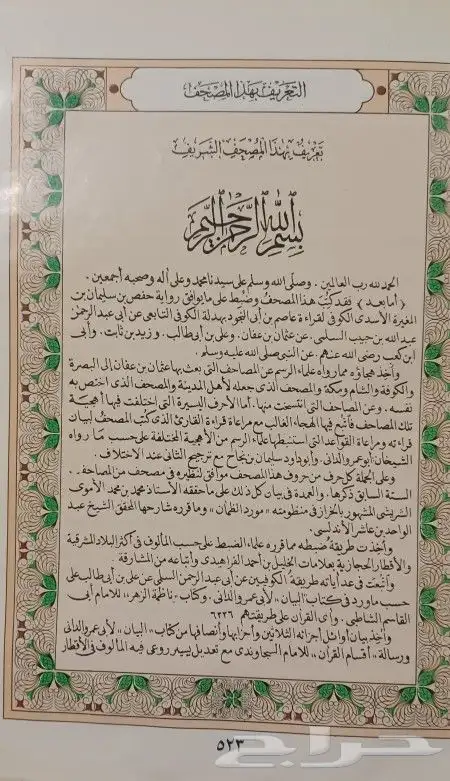 التعريف بهذا المصحف
تعريف بهذا المصحف الشريف
بسم الله الرحمن الرحيم
الحمد لله رب العالمين . وصلى الله وسلم على سيدنا محمد وعلى آله وصحبه أجمعين .
( أما بعد ) فقد كتب هذا المصحف وضبط على ما يوافق رواية حفص بن سليمان بن
المغيرة الأسدى الكوفى لقراءة عاصم بن أبى النجود بهدلة الكوفى التابعى عن أبى عبد الرحمن
عبد الله بن حبيب السلمى . عن عثمان بن عفان . وعلى بن أبى طالب . وزيد بن ثابت . وأبى
ابن كعب رضى الله عنهم . عن النبى صلى الله عليه وسلم .
وأخذ هجاؤه مما رواه علماء الرسم عن المصاحف التى بعث بها عثمان بن عفان إلى البصرة
والكوفة والشام ومكة والمصحف الذى جعله لأهل المدينة والمصحف الذى اختص به
نفسه . وعن المصاحف التى انتسخت منها . أما الأحرف اليسيرة التى اختلفت فيها أهجية
تلك المصاحف فاتبع فيها الهجاء الغالب مع مراعاة قراءة القارئ الذى كتب المصحف لبيان
قراءته ومراعاة القواعد التى استنبطها علماء الرسم من الأهجية المختلفة على حسب ما رواه
الشيخان : أبو عمرو الدانى . وأبو داود سليمان بن نجاح مع ترجيح الثانى عند الاختلاف .
وعلى الجملة كل حرف من حروف هذا المصحف موافق لنظيره فى مصحف من المصاحف
الستة السابق ذكرها . والعمدة فى بيان كل ذلك على ما حققه الأستاذ محمد بن محمد الأموى
الشريشى المشهور بالخراز فى منظومته « مورد الظمآن » وما قرره شارحها المحقق الشيخ عبد
الواحد بن عاشر الأندلسى .
وأخذت طريقة ضبطه مما قرره علماء الضبط على حسب المألوف فى أكثر البلاد المشرقية
والأقطار الحجازية بعلامات الخليل بن أحمد الفراهيدى وأتباعه من المشارقة .
وأتبعت فى عد آياته طريقة الكوفيين عن أبى عبد الرحمن السلمى عن على بن أبى طالب على
حسب ما ورد فى كتاب " البيان " لأبى عمرو الدانى . وكتاب " ناظمة الزهر " للإمام أبى
القاسم الشاطبى . وآى القرآن على طريقتهم ٦٢٣٦
وأخذ بيان أوائل أجزائه الثلاثين وأحزابها وأنصافها من كتاب " البيان " لأبى عمرو الدانى
ورسالة " أقسام القرآن " للإمام السجاوندى مع تعديل يسير روعى فيه المألوف فى الأقطار
٥٢٣
حراج